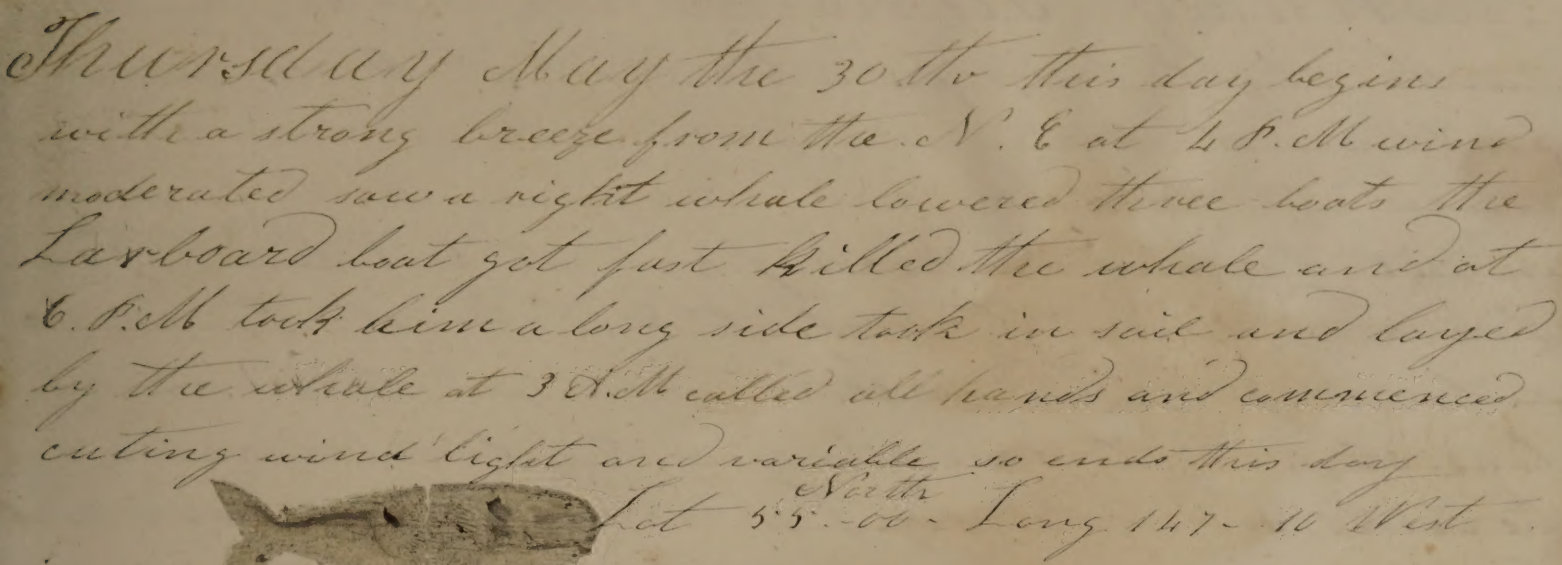 Thursday May the 30th this day begins
with a strong breeze from the N. E at 4 P.M wind
moderated saw a right whale lowered three boats the
Larboard boat got fast killed the whale and at
6. P.M took him a long side took in sail and layed
by the whale at 3 A.M called all hands and commenced
cuting wind light and variable so ends this day
North
Lat 55-00- Long 147-10 West